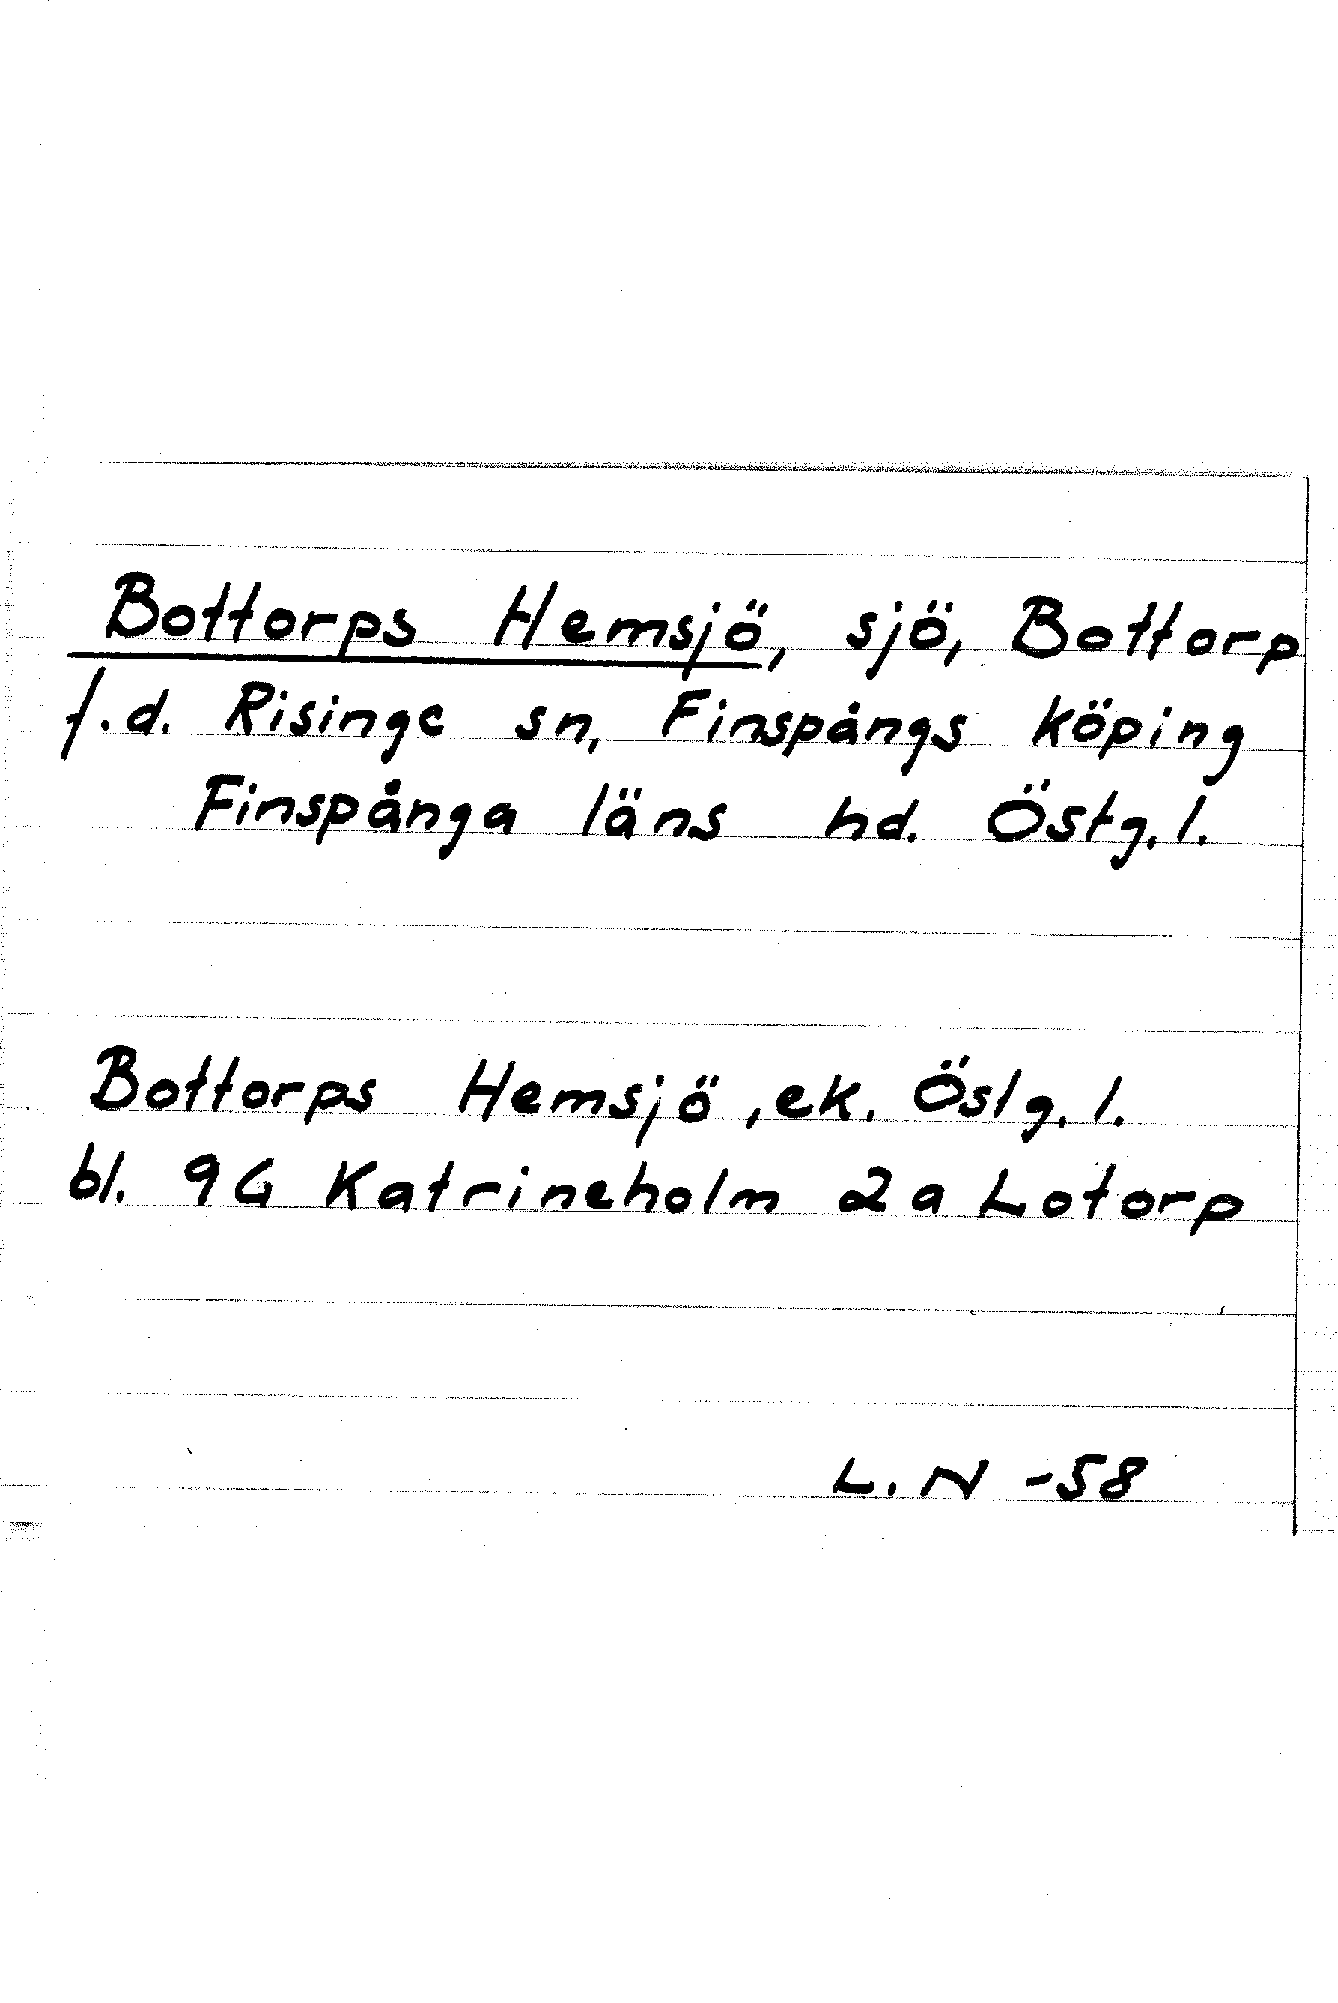 Bottorps Hemsjö, sjö, Bottorp
f.d. Risinge sn, Finspångs köping
Finspånga läns hd. Östg.l.
Bottorps Hemsjö, ek. Östg.l.
bl. 9G Katrineholm 2a Lotorp
L.N -58